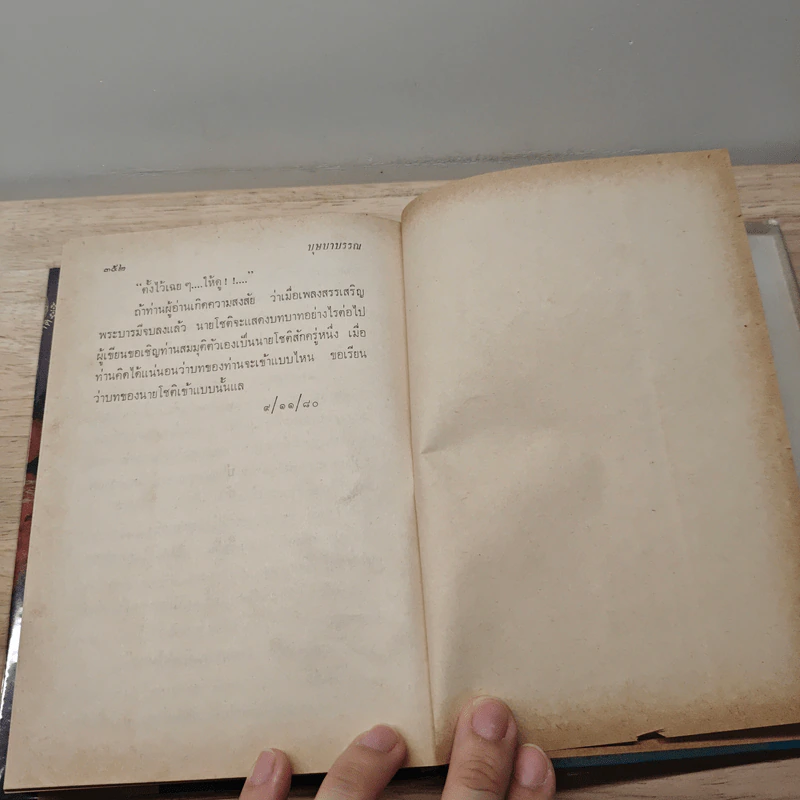 ๓๕๒
บุษบาบรรณ
"ตั้งไว้เฉย ๆ....ให้ดู ! !...."
ถ้าท่านผู้อ่านเกิดความสงสัย ว่าเมื่อเพลงสรรเสริญ
พระบารมีจบลงแล้ว นายโชติจะแสดงบทบาทอย่างไรต่อไป
ผู้เขียนขอเชิญท่านสมมุติตัวเองเป็นนายโชติสักครู่หนึ่ง เมื่อ
ท่านคิดได้แน่นอนว่าบทของท่านจะเข้าแบบไหน ขอเรียน
ว่าบทของนายโชติเข้าแบบนั้นแล
๙/๑๑/๘๐